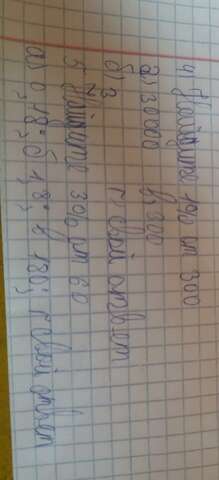 4) Найдите 1% от 300
а) 30000 в) 300
б) 3 г свой ответ
5 Найдите 3% от 60
а) 0,18; б 1,8; в 180; г свой ответ